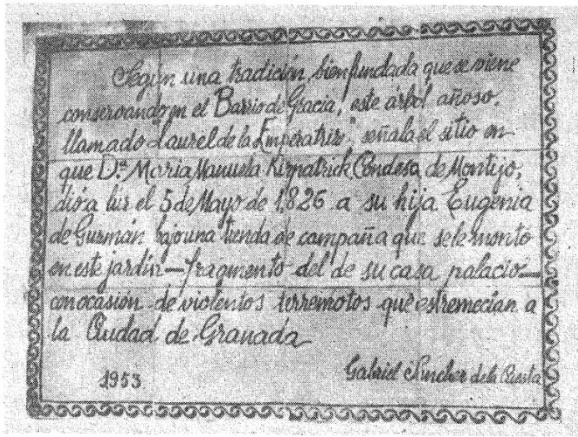 Según una tradición, bien fundada que se viene
conservando en el Barrio de Gracia, este árbol añoso,
llamado "Laurel de la Emperatriz", señala el sitio en
que D.ª María Manuela Kirpatrick Condesa de Montijo,
dió a luz el 5 de Mayo de 1.826 a su hija Eugenia
de Guzmán bajo una tienda de campaña que se le montó
en este jardín—fragmento del de su casa palacio—
con ocasión de violentos terremotos que estremecían a
la Ciudad de Granada
1953
Gabriel de la Cuesta